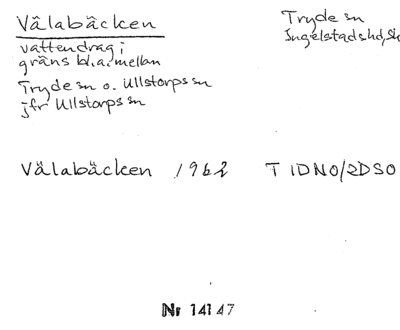 Välabäcken
Tryde sn
Ingelstads hd, Sk
vattendrag i
gräns bl.a. mellan
Tryde sn o. Ullstorps sn
jfr Ullstorps sn
Välabäcken 1962 T 1DNO/2DSO
Nr 14147